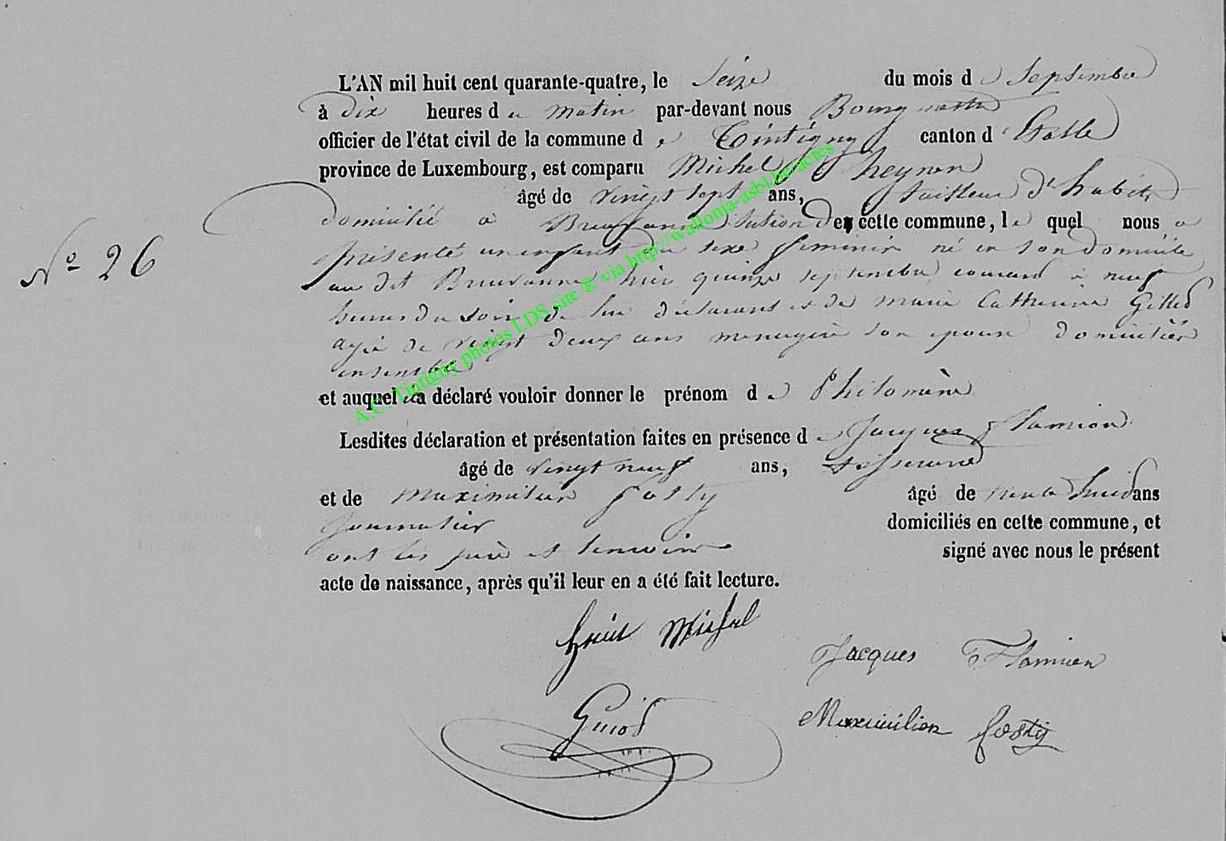 L'AN mil huit cent quarante-quatre, le Seize du mois d e Septembre
à dix heures d u matin par-devant nous Bourgmestre
officier de l'état civil de la commune d e Tintigny canton d'Etalle
province de Luxembourg, est comparu Michel
âgé de vingt sept ans, tailleur d'habits
domicilié à Breuvanne section de cette commune, le quel nous a
No 26
présenté un enfant du sexe féminin né en son domicile
au dit Breuvanne hier quinze septembre courant à neuf
heures du soir de lui déclarant et de marie Catherine Gilles
agée de vingt deux ans menagère son domiciliés
ensemble
et auquel il a déclaré vouloir donner le prénom d e Philomène
Lesdites déclaration et présentation faites en présence d e Jacques Flamion
âgé de vingt neuf ans, tisserand
et de Maximilien Fosty âgé de trente huit ans
journalier domiciliés en cette commune, et
ont les père et temoins signé avec nous le présent
acte de naissance, après qu'il leur en a été fait lecture.
Michel
Jacques Flamion
Maximilien Fosty
A.C. Tintigny photos LDS site @ via http://wallonia-asbl.be/actes